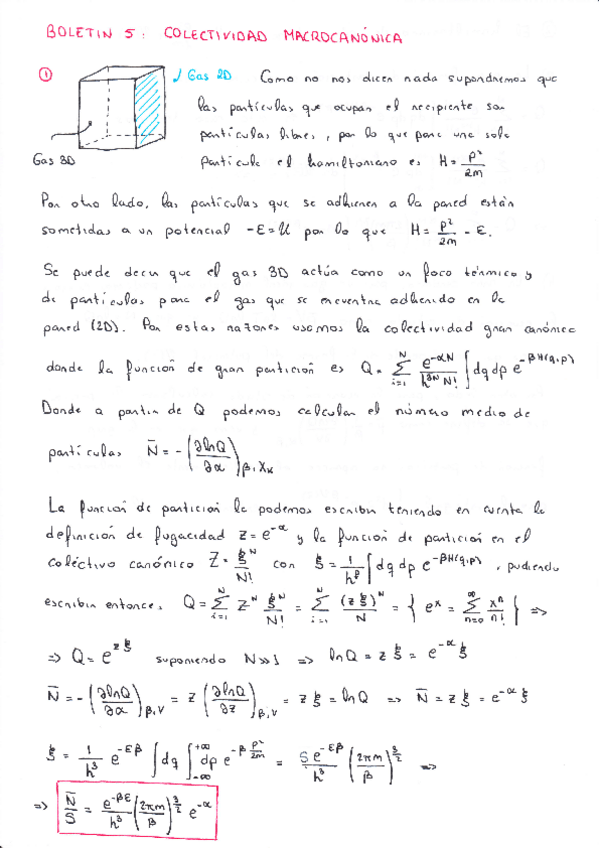 BOLETIN 5: COLECTIVIDAD MACROCANÓNICA
① Gas 2D Como no nos dicen nada supondremos que
las partículas que ocupan el recipiente son
partículas libres, por lo que para una sola
Gas 3D partícula el hamiltoniano es H = p²/2m
Por otro lado, las partículas que se adhieren a la pared están
sometidas a un potencial -ε = U por lo que H = p²/2m - ε.
Se puede decir que el gas 3D actúa como un foco térmico y
de partículas para el gas que se encuentra adherido en la
pared (2D). Por estas razones usamos la colectividad gran canónica
donde la función de gran partición es Q = Σ_{i=1}^{N} e^{-αN}/(h^{3N} N!) ∫dq dp e^{-βH(q,p)}
Donde a partir de Q podemos calcular el número medio de
partículas N̄ = -(∂lnQ/∂α)_{β, X_K}
La función de partición la podemos escribir teniendo en cuenta la
definición de fugacidad z = e^{-α} y la función de partición en el
colectivo canónico Z = ξ^N/N! con ξ = 1/h^f ∫dq dp e^{-βH(q,p)}, pudiendo
escribir entonces Q = Σ_{i=1}^{N} z^N ξ^N/N! = Σ_{i=1}^{N} (zξ)^N/N = { e^x = Σ_{n=0}^{∞} x^n/n! } ⇒
⇒ Q = e^{zξ} suponiendo N≫1 ⇒ lnQ = zξ = e^{-α} ξ
N̄ = -(∂lnQ/∂α)_{β,V} = z(∂lnQ/∂z)_{β,V} = zξ = lnQ ⇒ N̄ = zξ = e^{-α} ξ
ξ = 1/h³ e^{-εβ} ∫dq ∫_{-∞}^{+∞} dp e^{-β p²/2m} = S e^{-εβ}/h³ (2πm/β)^{3/2} ⇒
⇒ N̄/S = e^{-βε}/h³ (2πm/β)^{3/2} e^{-α}